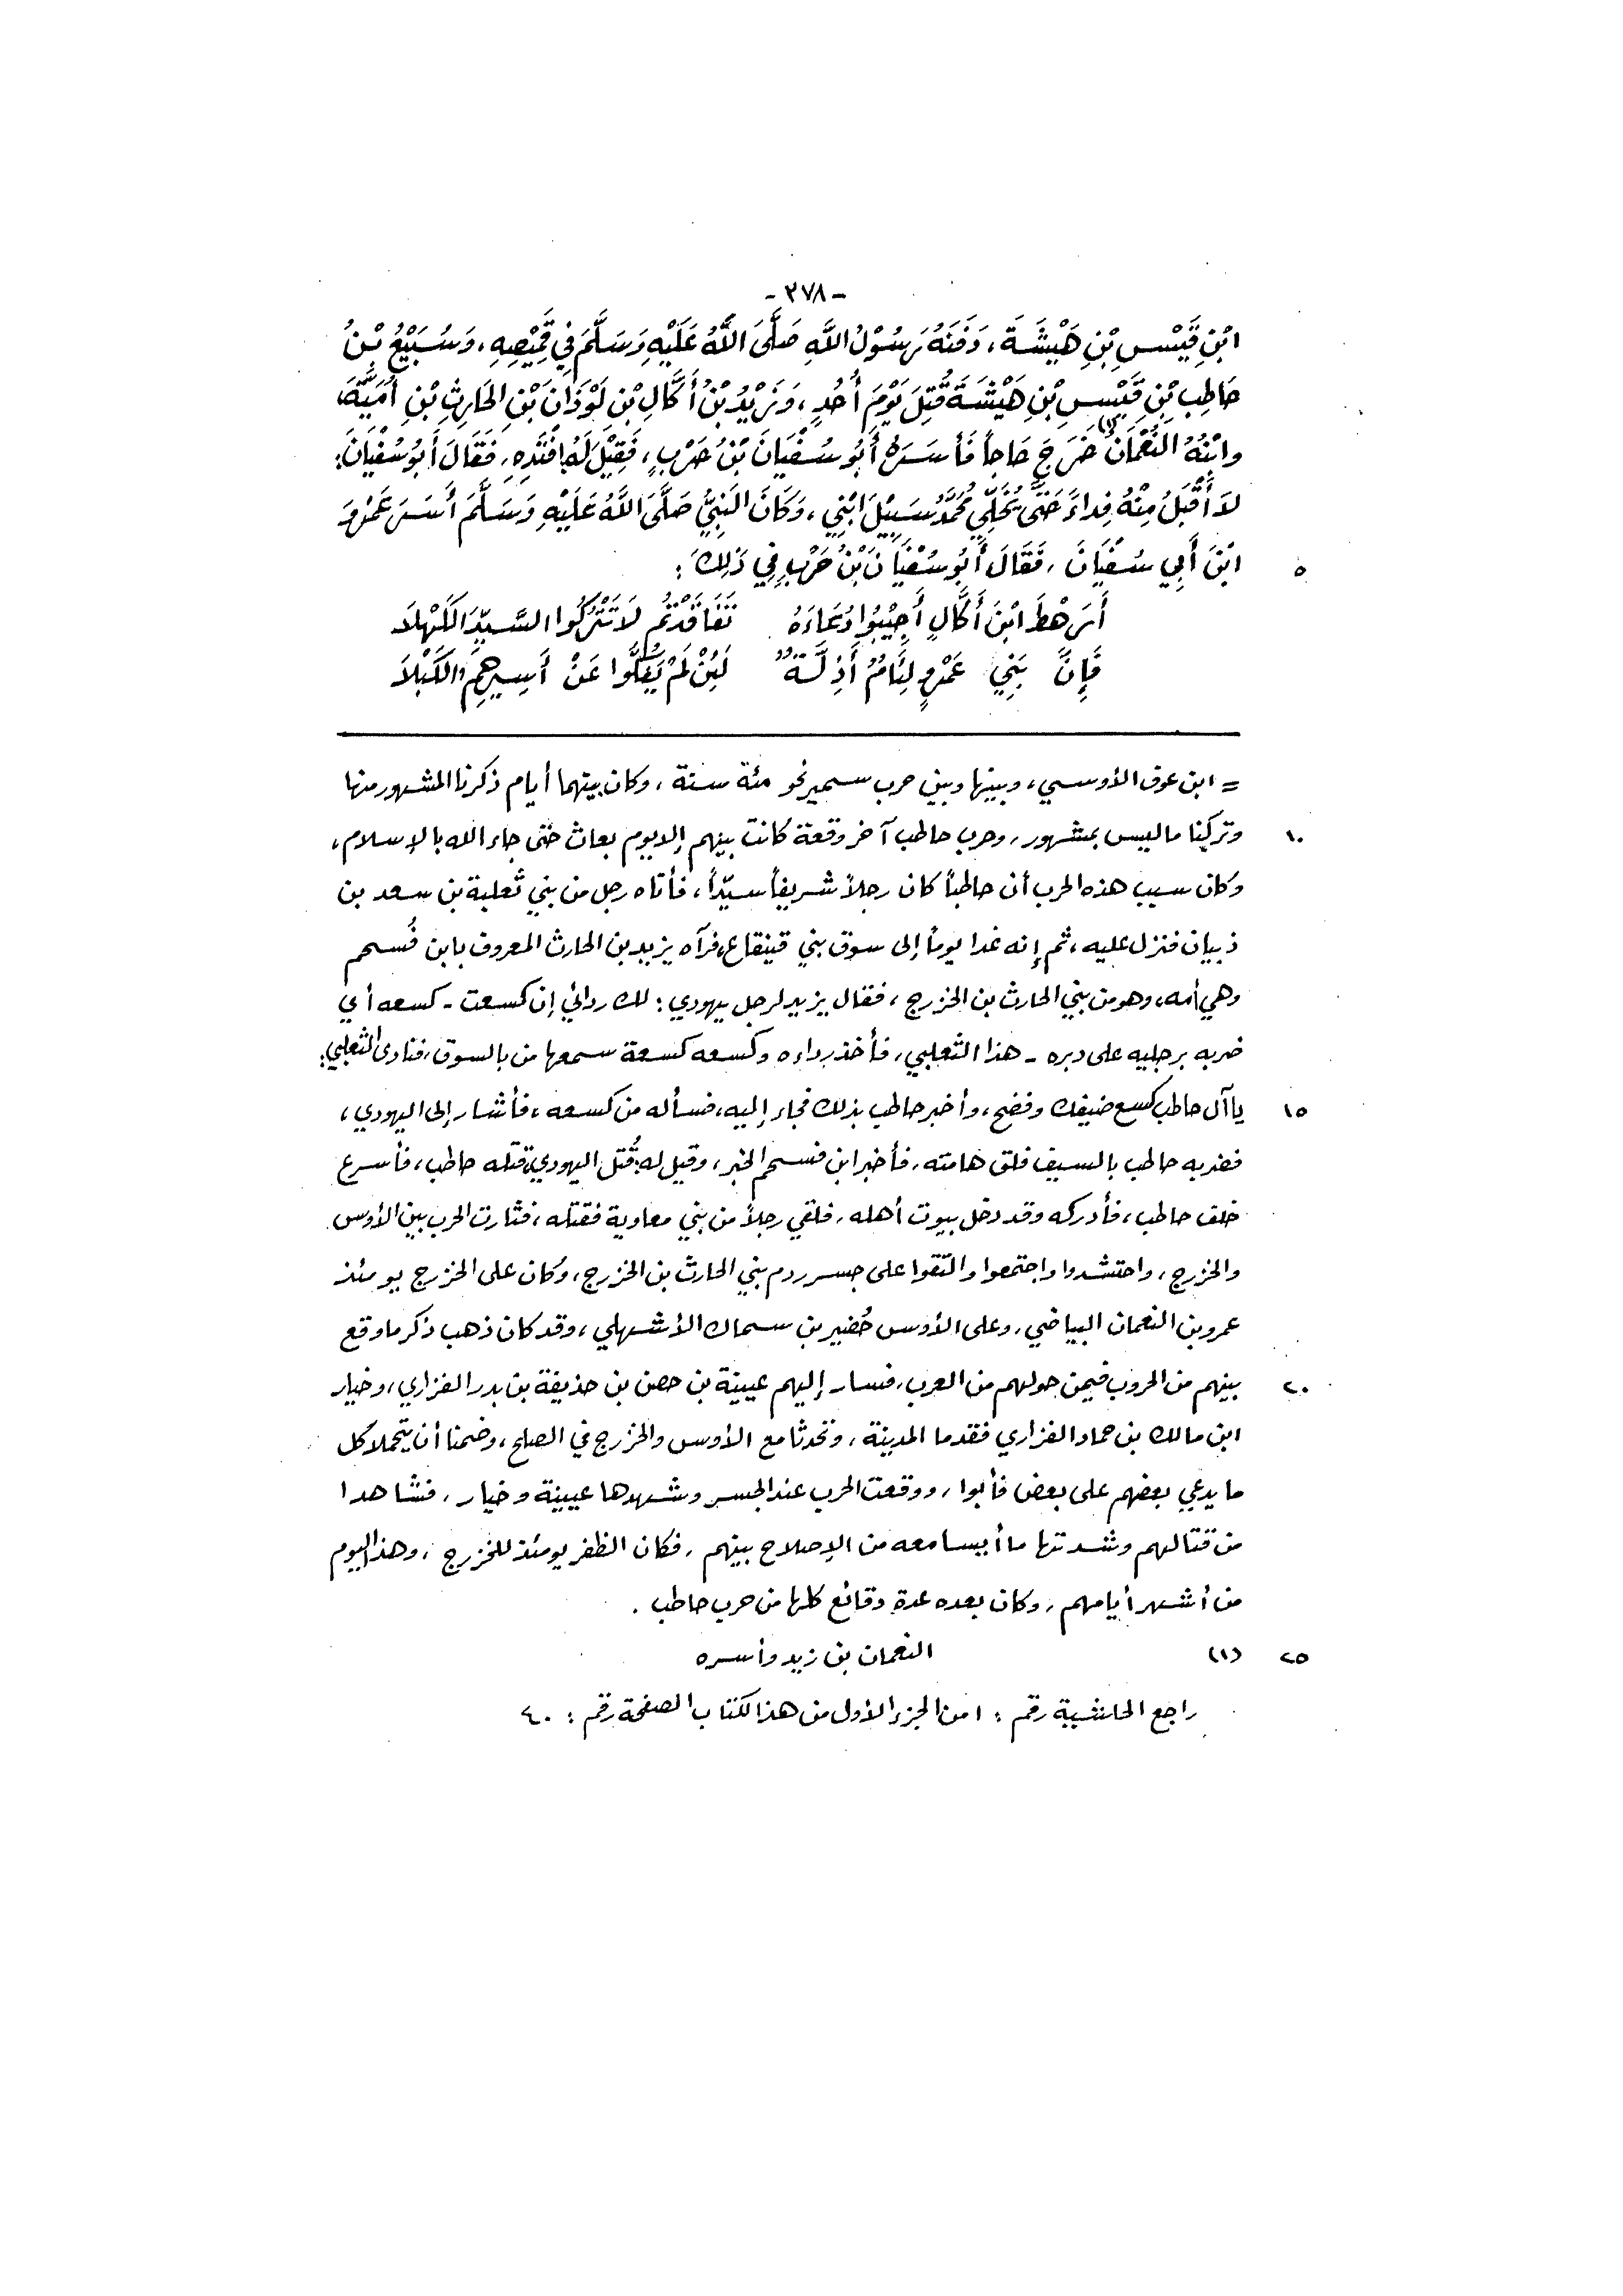 -٢٧٨-
ابْنِ قَيْسِ بْنِ هَيْشَةَ، دَفَنَهُ رَسُوْلُ اللَّهِ صَلَّى اللَّهُ عَلَيْهِ وَسَلَّمَ فِي قَمِيْصِهِ، وَسُبَيْعُ بْنُ
حَاطِبِ بْنِ قَيْسِ بْنِ هَيْشَةَ قُتِلَ يَوْمَ أُحُدٍ، وَزَيْدُ بْنُ أَكَّالِ بْنِ لَوْذَانَ بْنِ الحَارِثِ بْنِ أُمَيَّةَ،
وابْنُهُ النُّعْمَانُ(١) خَرَجَ حَاجاً فَأَسَرَهُ أَبُو سُفْيَانَ بْنُ حَرْبٍ، فَقِيْلَ لَهُ افْتَدِهِ، فَقَالَ أَبُو سُفْيَانَ:
لاَ أَقْبَلُ مِنْهُ فِداءً حَتَّى يُخَلِّي مُحَمَّدُ سَبِيْلَ ابْنِي، وَكَانَ النَّبِيُّ صَلَّى اللَّهُ عَلَيْهِ وَسَلَّمَ أَسَرَ عَمْرَو
٥ ابْنَ أَبِي سُفْيَانَ، فَقَالَ أَبُو سُفْيَانَ بْنُ حَرْبٍ فِي ذَلِكَ:
أَرَهْطَ ابْنَ أَكَّالٍ أَجِيْبُوا دُعَاءَهُ تَفَاقَدْتُمُ لاَ تَتْرُكُوا السَّيِّدَ الكَهْلاَ
فَإِنَّ بَنِي عَمْرٍو لِئَامٌ أَذِلَّةٌ لَئِنْ لَمْ يَفُكُّوا عَنْ أَسِيرِهِمِ الكَبْلاَ
= ابن عوف الأوسي، وبينها وبين حرب سمير نحو مئة سنة، وكان بينهما أيام ذكرنا المشهور منها
١٠ وتركنا ما ليس بمشهور، وحرب حاطب آخر وقعة كانت بينهم إلا يوم بعاث حتى جاء الله بالإسلام،
وكان سبب هذه الحرب أن حاطباً كان رجلاً شريفاً سيّداً، فأتاه رجل من بني ثعلبة بن سعد بن
ذبيان فنزل عليه، ثم إنه غدا يوماً إلى سوق بني قينقاع، فرآه يزيد بن الحارث المعروف بابن فُسحم
وهي أمه، وهو من بني الحارث بن الخزرج، فقال يزيد لرجل يهودي: لك ردائي إن كسعت - كسعه أي
ضربه برجليه على دبره - هذا الثعلبي، فأخذ رداءه وكسعه كسعة سمعها من بالسوق، فنادى الثعلبي:
١٥ يا آل حاطب كسع ضيفك وفضح، وأخبر حاطب بذلك فجاء إليه، فسأله من كسعه، فأشار إلى اليهودي،
فضربه حاطب بالسيف فلق هامته، فأخبر ابن فسحم الخبر، وقيل له: قُتل اليهودي، قتله حاطب، فأسرع
خلف حاطب، فأدركه وقد دخل بيوت أهله، فلقي رجلاً من بني معاوية فقتله، فثارت الحرب بين الأوس
والخزرج، واحتشدوا واجتمعوا والتقوا على جسر ردم بني الحارث بن الخزرج، وكان على الخزرج يومئذ
عمرو بن النعمان البياضي، وعلى الأوس حُضير بن سماك الأشهلي، وقد كان ذهب ذكر ما وقع
٢٠ بينهم من الحروب فيمن حولهم من العرب، فسار إليهم عيينة بن حصن بن حذيفة بن بدر الفزاري، وخيار
ابن مالك بن حماد الفزاري فقدما المدينة، وتحدثا مع الأوس والخزرج في الصلح، وضمنا أن يتحملا كل
ما يدعي بعضهم على بعض فأبوا، ووقعت الحرب عند الجسر وشهدها عيينة وخيار، فشاهدا
من قتالهم وشدتها ما أيسا معه من الإصلاح بينهم، فكان الظفر يومئذ للخزرج، وهذا اليوم
من أشهر أيامهم، وكان بعده عدة وقائع كلها من حرب حاطب.
٢٥ (١) النعمان بن زيد وأسره
راجع الحاشية رقم: ١ من الجزء الأول من هذا الكتاب الصفحة رقم: ٤٠